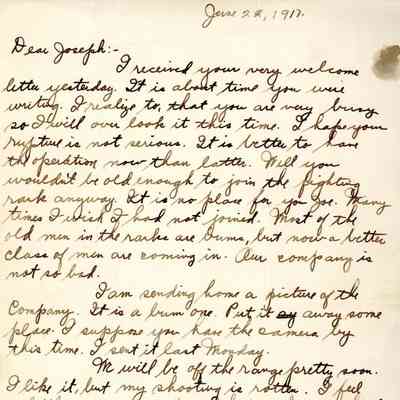 June 28, 1917.
Dear Joseph:-
I received your very welcome
letter yesterday. It is about time you were
writing. I realize to, that you are very busy
so I will over look it this time. I hope your
rupture is not serious. It is better to have
the operation now than latter. Well you
wouldn't be old enough to join the fighting
rank anyway. It is no place for you Joe. Many
times I wish I had not joined. Most of the
old men in the ranks are bums, but now a better
class of men are coming in. Our company is
not so bad.
I am sending home a picture of the
Company. It is a bum one. Put it away some
place. I suppose you have the camera by
this time. I sent it last Monday.
We will be off the range pretty soon.
I like it, but my shooting is rotten. I feel